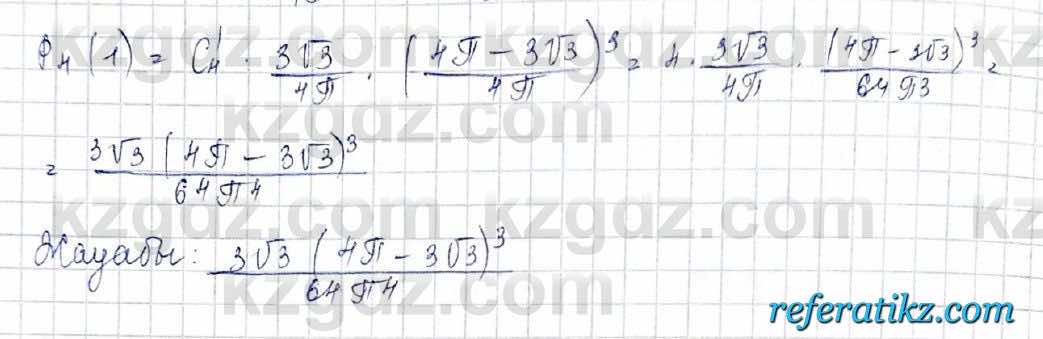 P₄(1) = C₄¹ · 3√3/4π · ((4π − 3√3)/4π)³ = 4 · 3√3/4π · (4π − 3√3)³/64π3 =
= 3√3(4π − 3√3)³/64π4
Жауабы: 3√3(4π − 3√3)³/64π4
kzgdz.com kzgdz.com
kzgdz.com
kzgdz.com kzgdz.com
kzgdz.com
referatikz.com